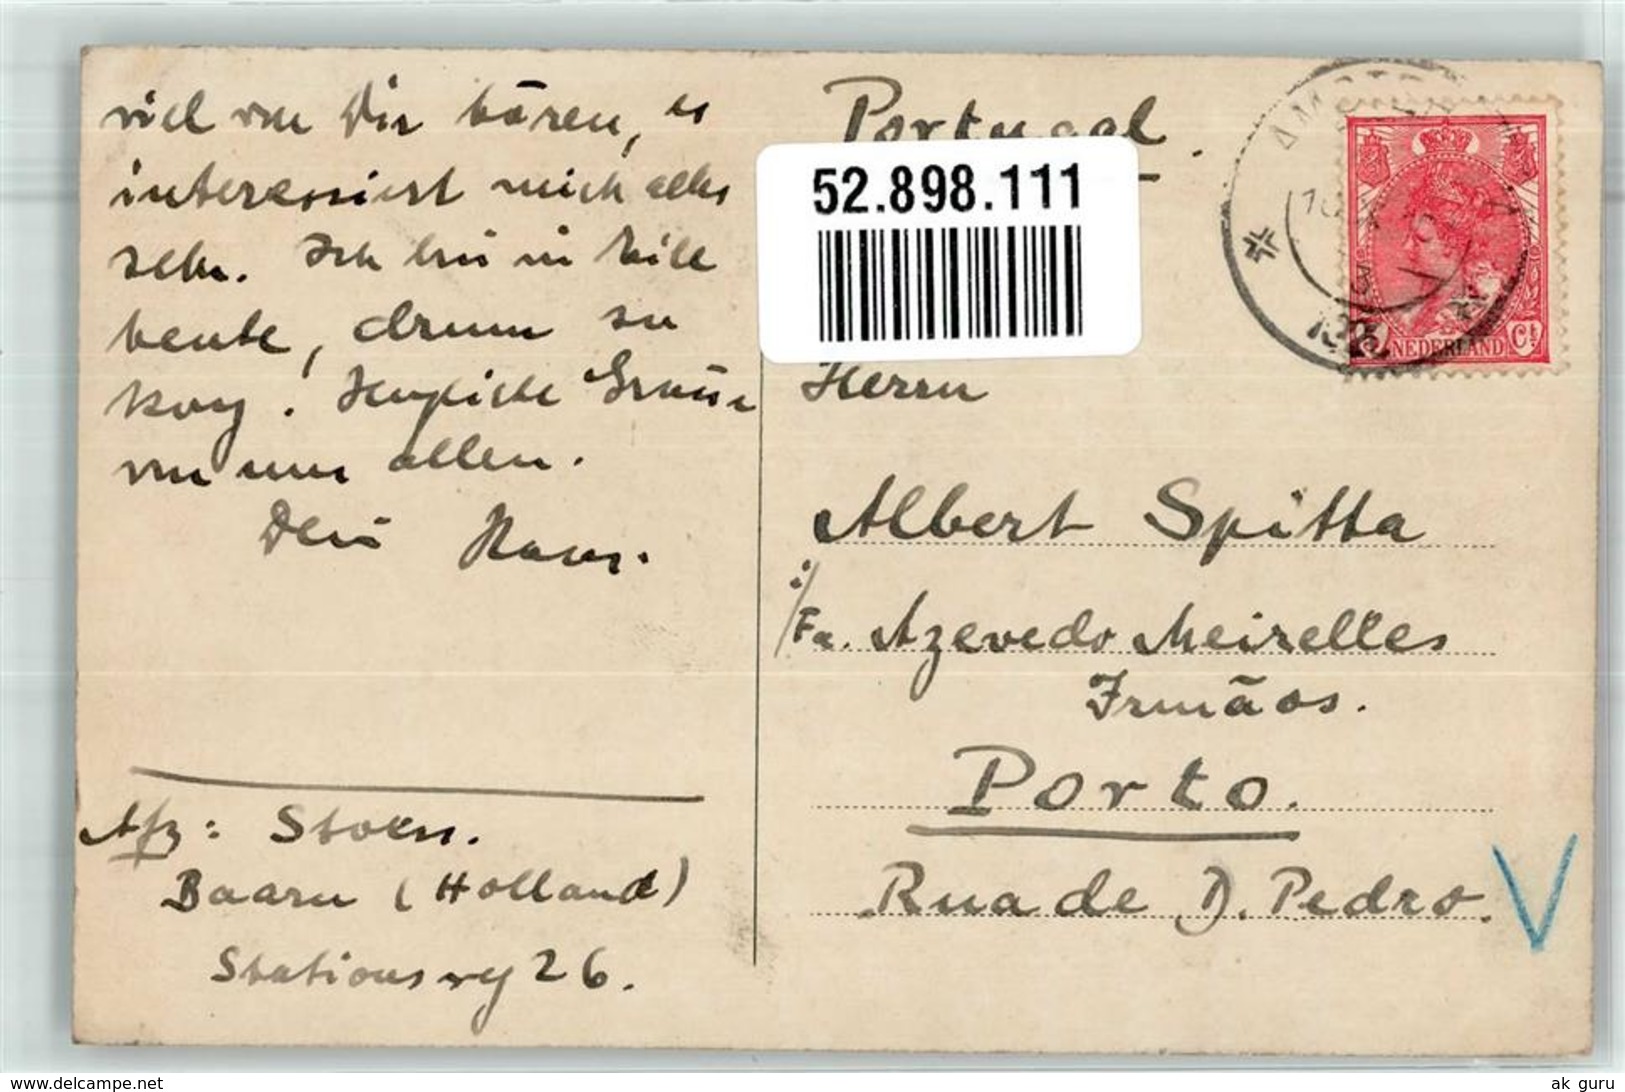 viel von Dir hören, es
interessiert mich alles
sehr. Ich bin in Eile
heute, drum so
kurz. Herzliche Grüsse
von uns allen.
Dein Hans.
Afz: Stoess.
Baarn (Holland)
Stationsweg 26.
Portugal.
52.898.111
AMSTERD
NEDERLAND Ct
Herrn
Albert Spitta
i/Fa. Azevedo Meirelles
Irmãos.
Porto.
Rua de D. Pedro.
V
delcampe.net
ak_guru